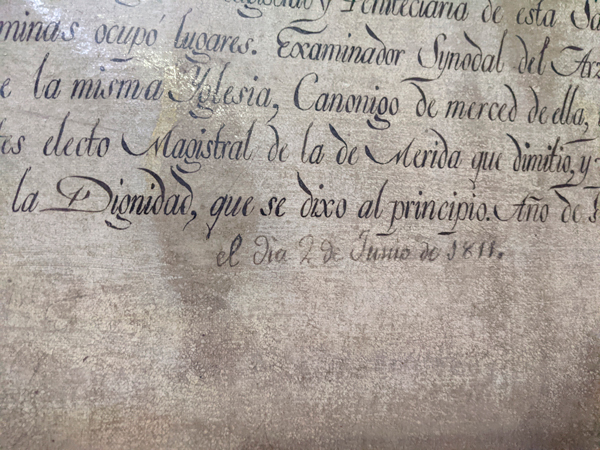 y Peniteciaria de esta
minas ocupó lugares. Examinador Synodal del
e la misma Yglesia, Canonigo de merced de ella,
electo Magistral de la de Merida que dimitio, y
la Dignidad, que se dixo al principio. Año de
el dia 2 de Junio de 1811.